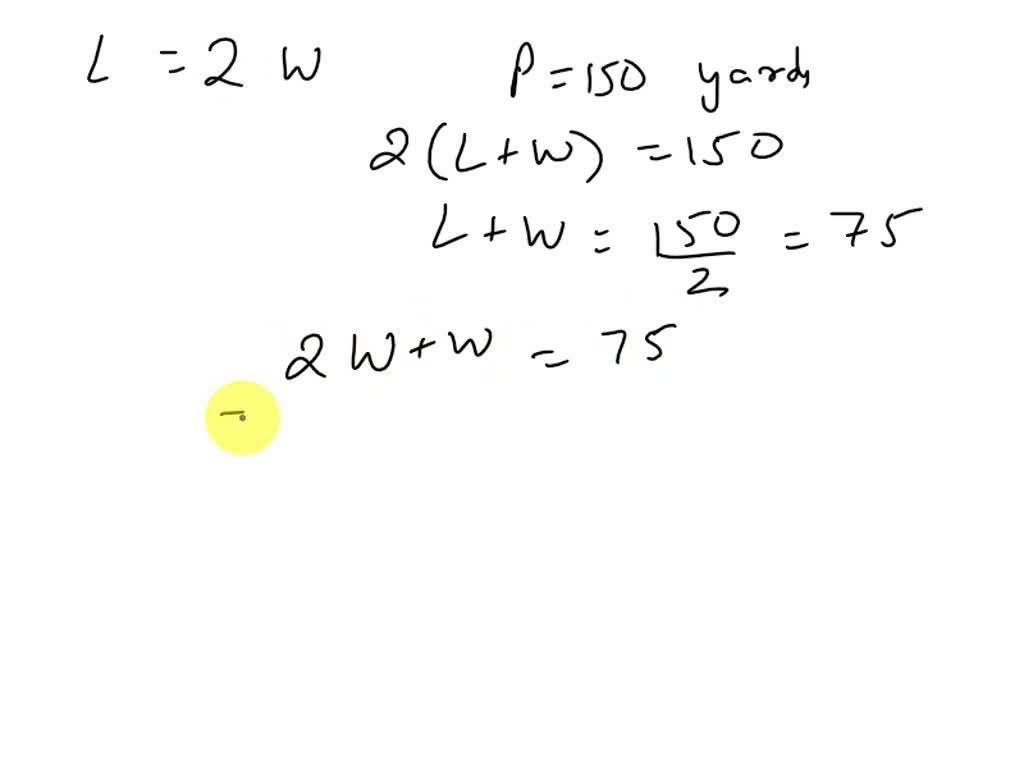 L = 2 W
P = 150 yards
2(L+W) = 150
L + W = 150/2 = 75
2W + W = 75